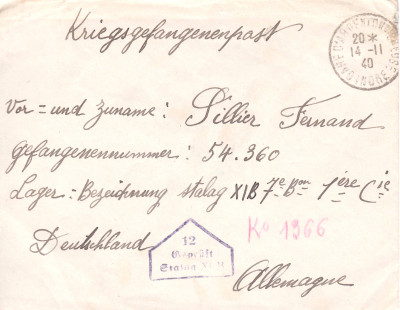 Kriegsgefangenenpost
20*
14-11
40
Vor = und Zuname : Sillier Fernand
Gefangenennummer : 54.360
Lager = Bezeichnung stalag XIB 7e Bon 1ère Cie
Deutschland
Ko 1366
12
Geprüft
Stalag XI B
Allemagne